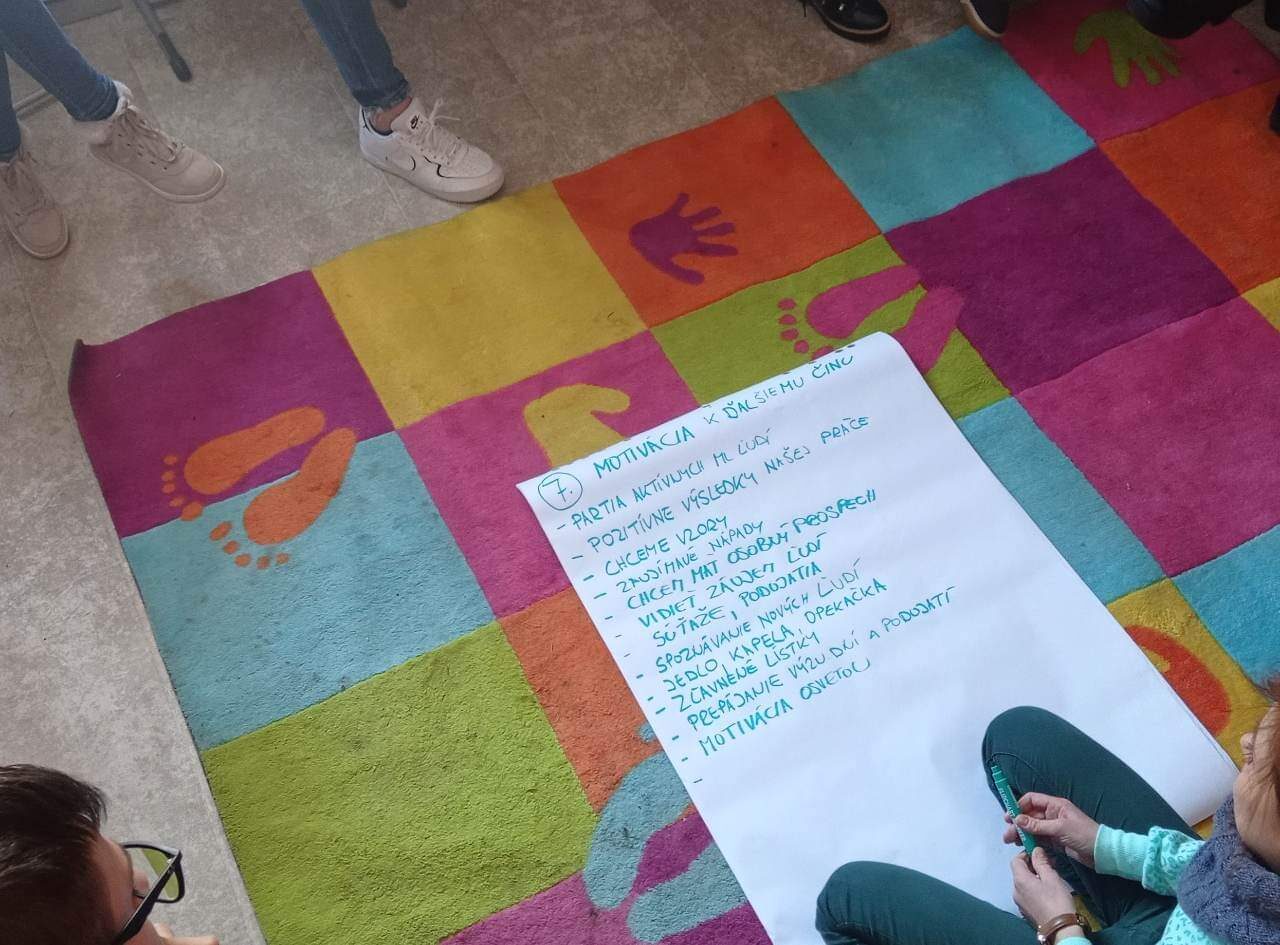 7. MOTIVÁCIA K ĎALŠIEMU ČINU
- PARTIA AKTÍVNYCH ML ĽUDÍ
- POZITÍVNE VÝSLEDKY NAŠEJ PRÁCE
- CHCEME VZORY
- ZAUJÍMAVÉ NÁPADY
- CHCEM MAŤ OSOBNÝ PROSPECH
- VIDIEŤ ZÁUJEM ĽUDÍ
- SÚŤAŽE, PODUJATIA
- SPOZNÁVANIE NOVÝCH ĽUDÍ
- JEDLO, KAPELA, OPEKAČKA
- ZĽAVNENÉ LÍSTKY
- PREPÁJANIE VÝZU DNÍ A PODUJATÍ
- MOTIVÁCIA OSVETOU
-